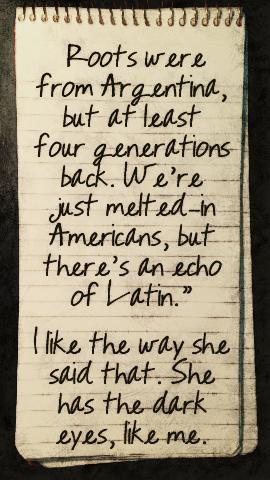 Roots were
from Argentina,
but at least
four generations
back. We're
just melted-in
Americans, but
there's an echo
of Latin."
I like the way she
said that. She
has the dark
eyes, like me.